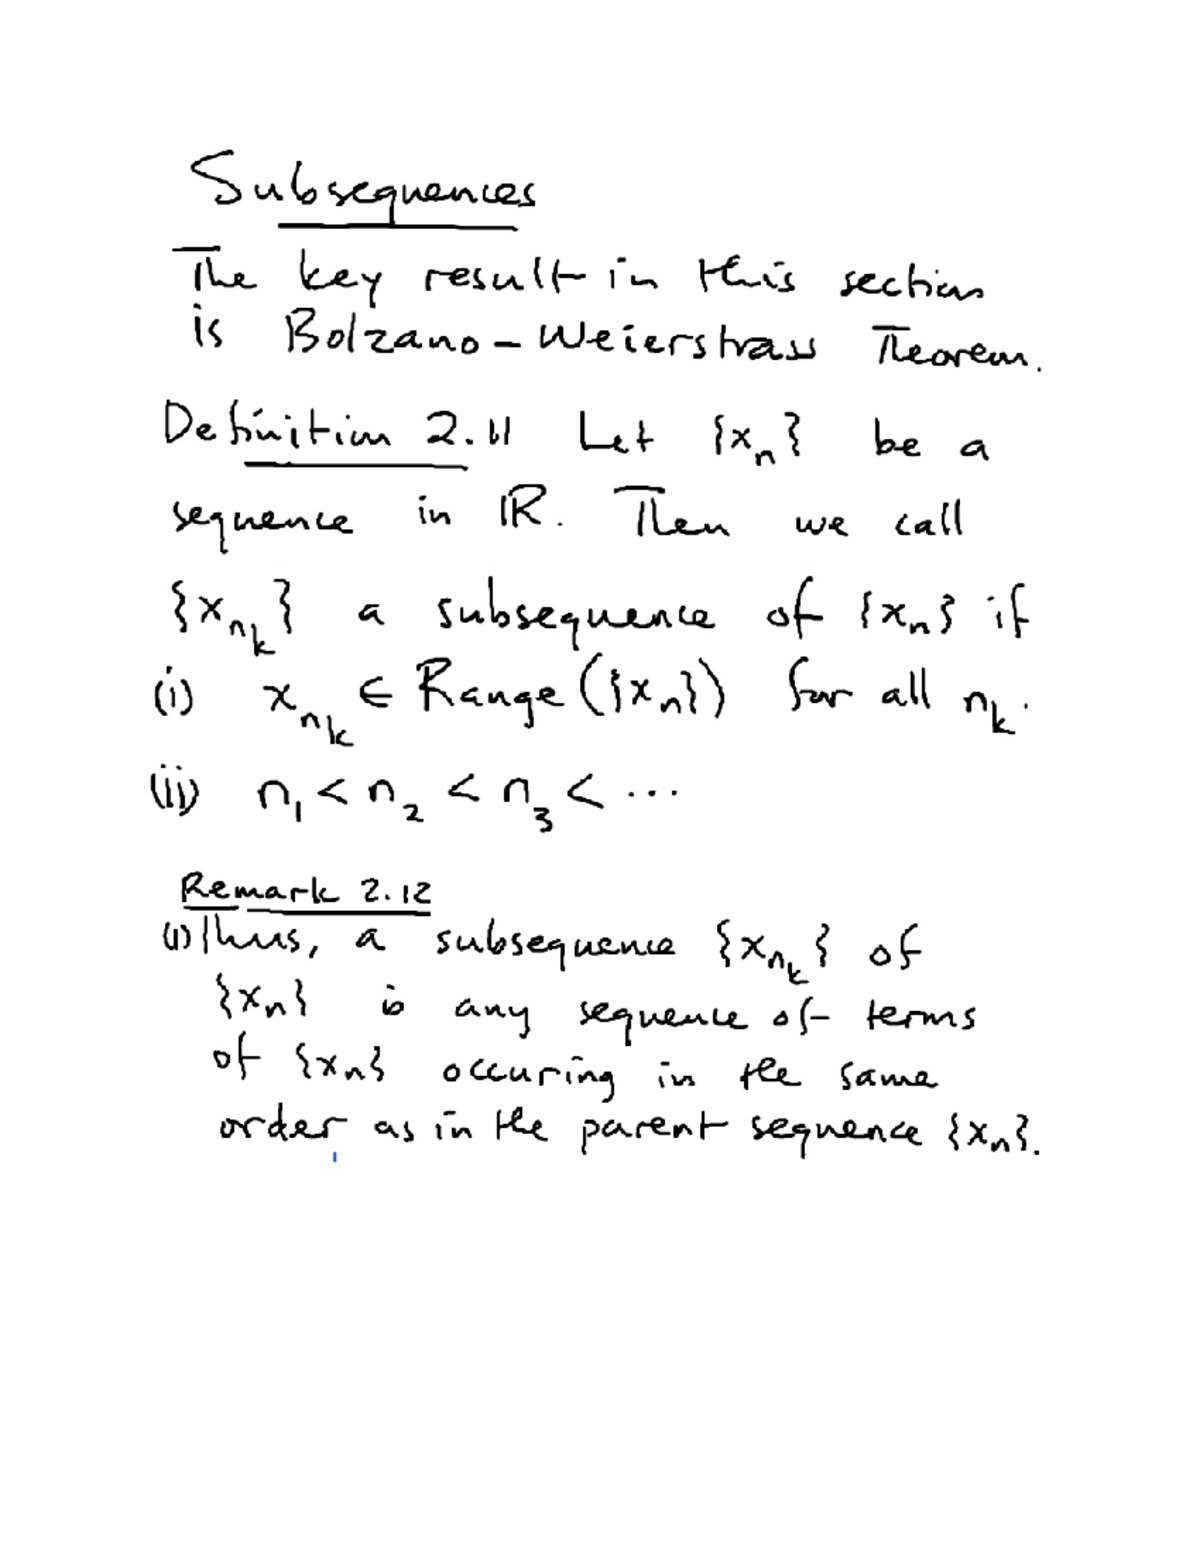 Subsequences
The key result in this section
is Bolzano-Weierstrass Theorem.
Definition 2.11 Let {xₙ} be a
sequence in ℝ. Then we call
{x_{n_k}} a subsequence of {xₙ} if
(i) x_{n_k} ∈ Range({xₙ}) for all n_k.
(ii) n₁ < n₂ < n₃ < ...
Remark 2.12
(1) Thus, a subsequence {x_{n_k}} of
{xₙ} is any sequence of terms
of {xₙ} occuring in the same
order as in the parent sequence {xₙ}.